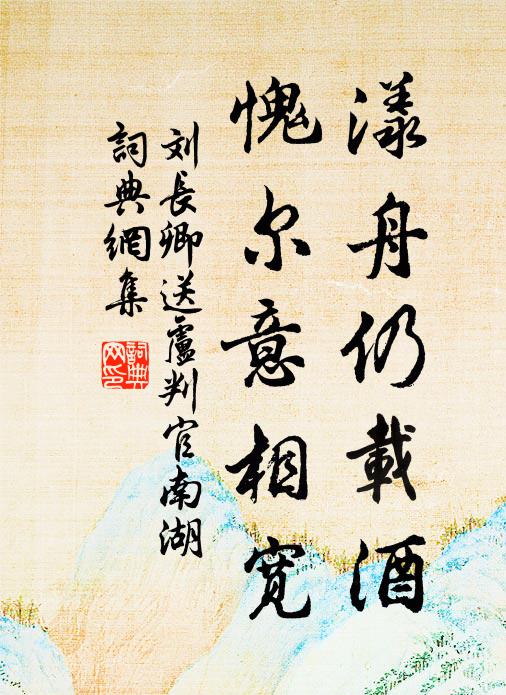 漾舟仍載酒
愧尔意相宽
刘長卿送盧判官南湖
詞典網集
詞典网印